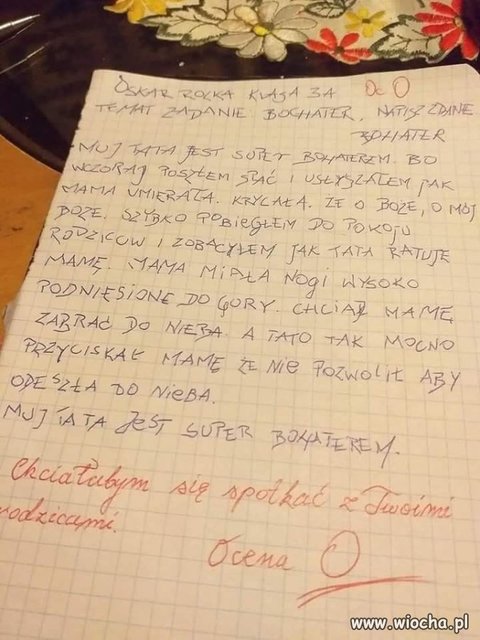 OSKAR ROLKA KLASA 3A Oc O
TEMAT ZADANIE. BOCHATER. NAPISZ ZDANIE
BOHATER
MUJ TATA JEST SUPER BOHATEREM. BO
WCZORAJ POSZŁEM SPAĆ I USŁYSZAŁEM JAK
MAMA UMIERAŁA. KRYCAŁA. ŻE O BOŻE, O MÓJ
BOŻE. SZYBKO POBIEGŁEM DO POKOJU
RODZICOW I ZOBACYŁEM JAK TATA RATUJE
MAMĘ. MAMA MIAŁA NOGI WYSOKO
PODNIESIONE DO GÓRY. CHCIAŁ MAMĘ
ZABRAĆ DO NIEBA. A TATO TAK MOCNO
PRZYCISKAŁ MAMĘ ŻE NIE POZWOLIŁ ABY
ODESZŁA DO NIEBA.
MUJ TATA JEST SUPER BOHATEREM.
Chciałabym się spotkać z Twoimi
rodzicami.
Ocena O
www.wiocha.pl